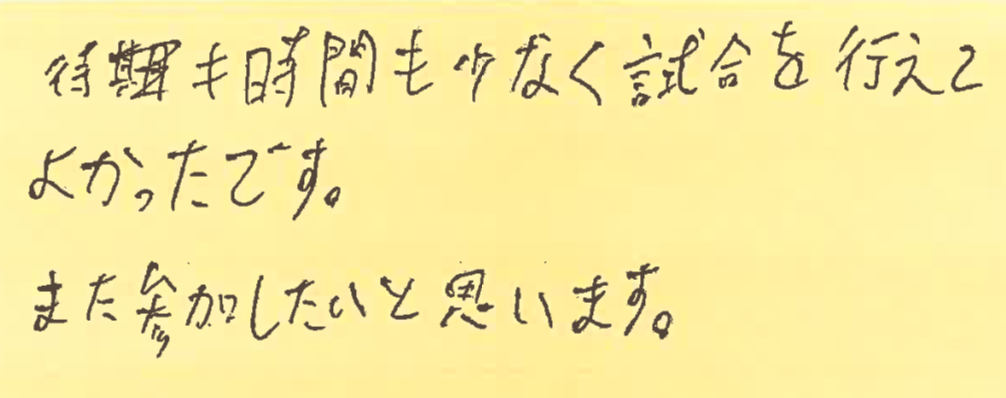 待期も時間も少なく試合を行えて
よかったです。
また参加したいと思います。